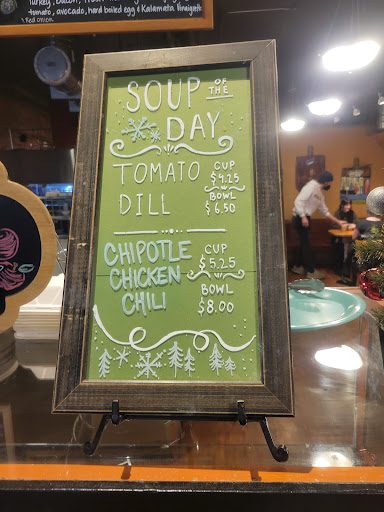 Turkey, Bacon,
tomato, avocado, hard boiled egg & Kalamata Vinaigrette
Red Onion
SOUP OF THE
DAY
TOMATO
DILL
CUP
$4.25
BOWL
$6.50
CHIPOTLE
CHICKEN
CHILI
CUP
$5.25
BOWL
$8.00